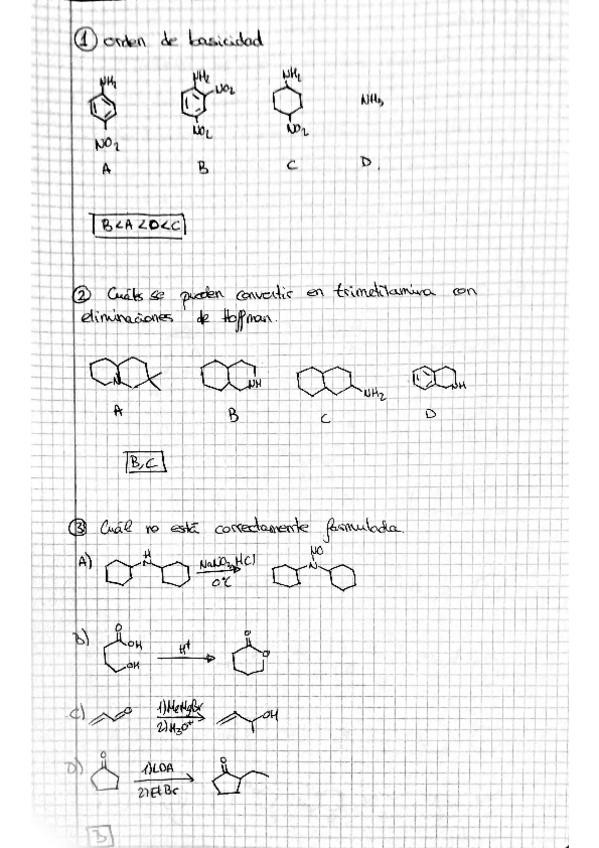 ① orden de basicidad
NH₂ NH₂ NO₂ NH₂ NH₃
NO₂ NO₂ NO₂
A B C D.
B<A<D<C
② Cuáles se pueden convertir en trimetilamina con
eliminaciones de Hoffman.
N NH NH₂ NH
A B C D
B, C
③ Cuál no está correctamente formulada.
A) H N NaNO₂, HCl 0ºC NO N
B) O OH OH H⁺ O O
C) O 1) MeMgBr 2) H₃O⁺ OH
D) O 1) LDA 2) EtBr O
B